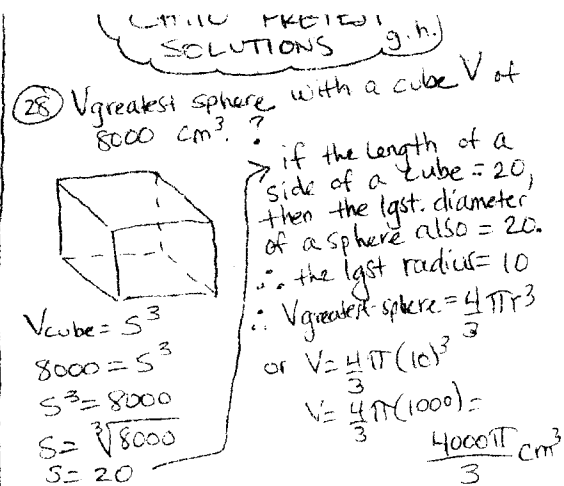 PRETEST
SOLUTIONS g.h.
28 Vgreatest sphere with a cube V of
8000 cm³. ?
Vcube = S³
8000 = S³
S³ = 8000
S = ∛8000
S = 20
if the length of a
side of a cube = 20,
then the lgst. diameter
of a sphere also = 20.
∴ the lgst radius = 10
∴ Vgreatest sphere = 4/3 πr³
or V = 4/3 π(10)³
V = 4/3 π(1000) =
4000π/3 cm³